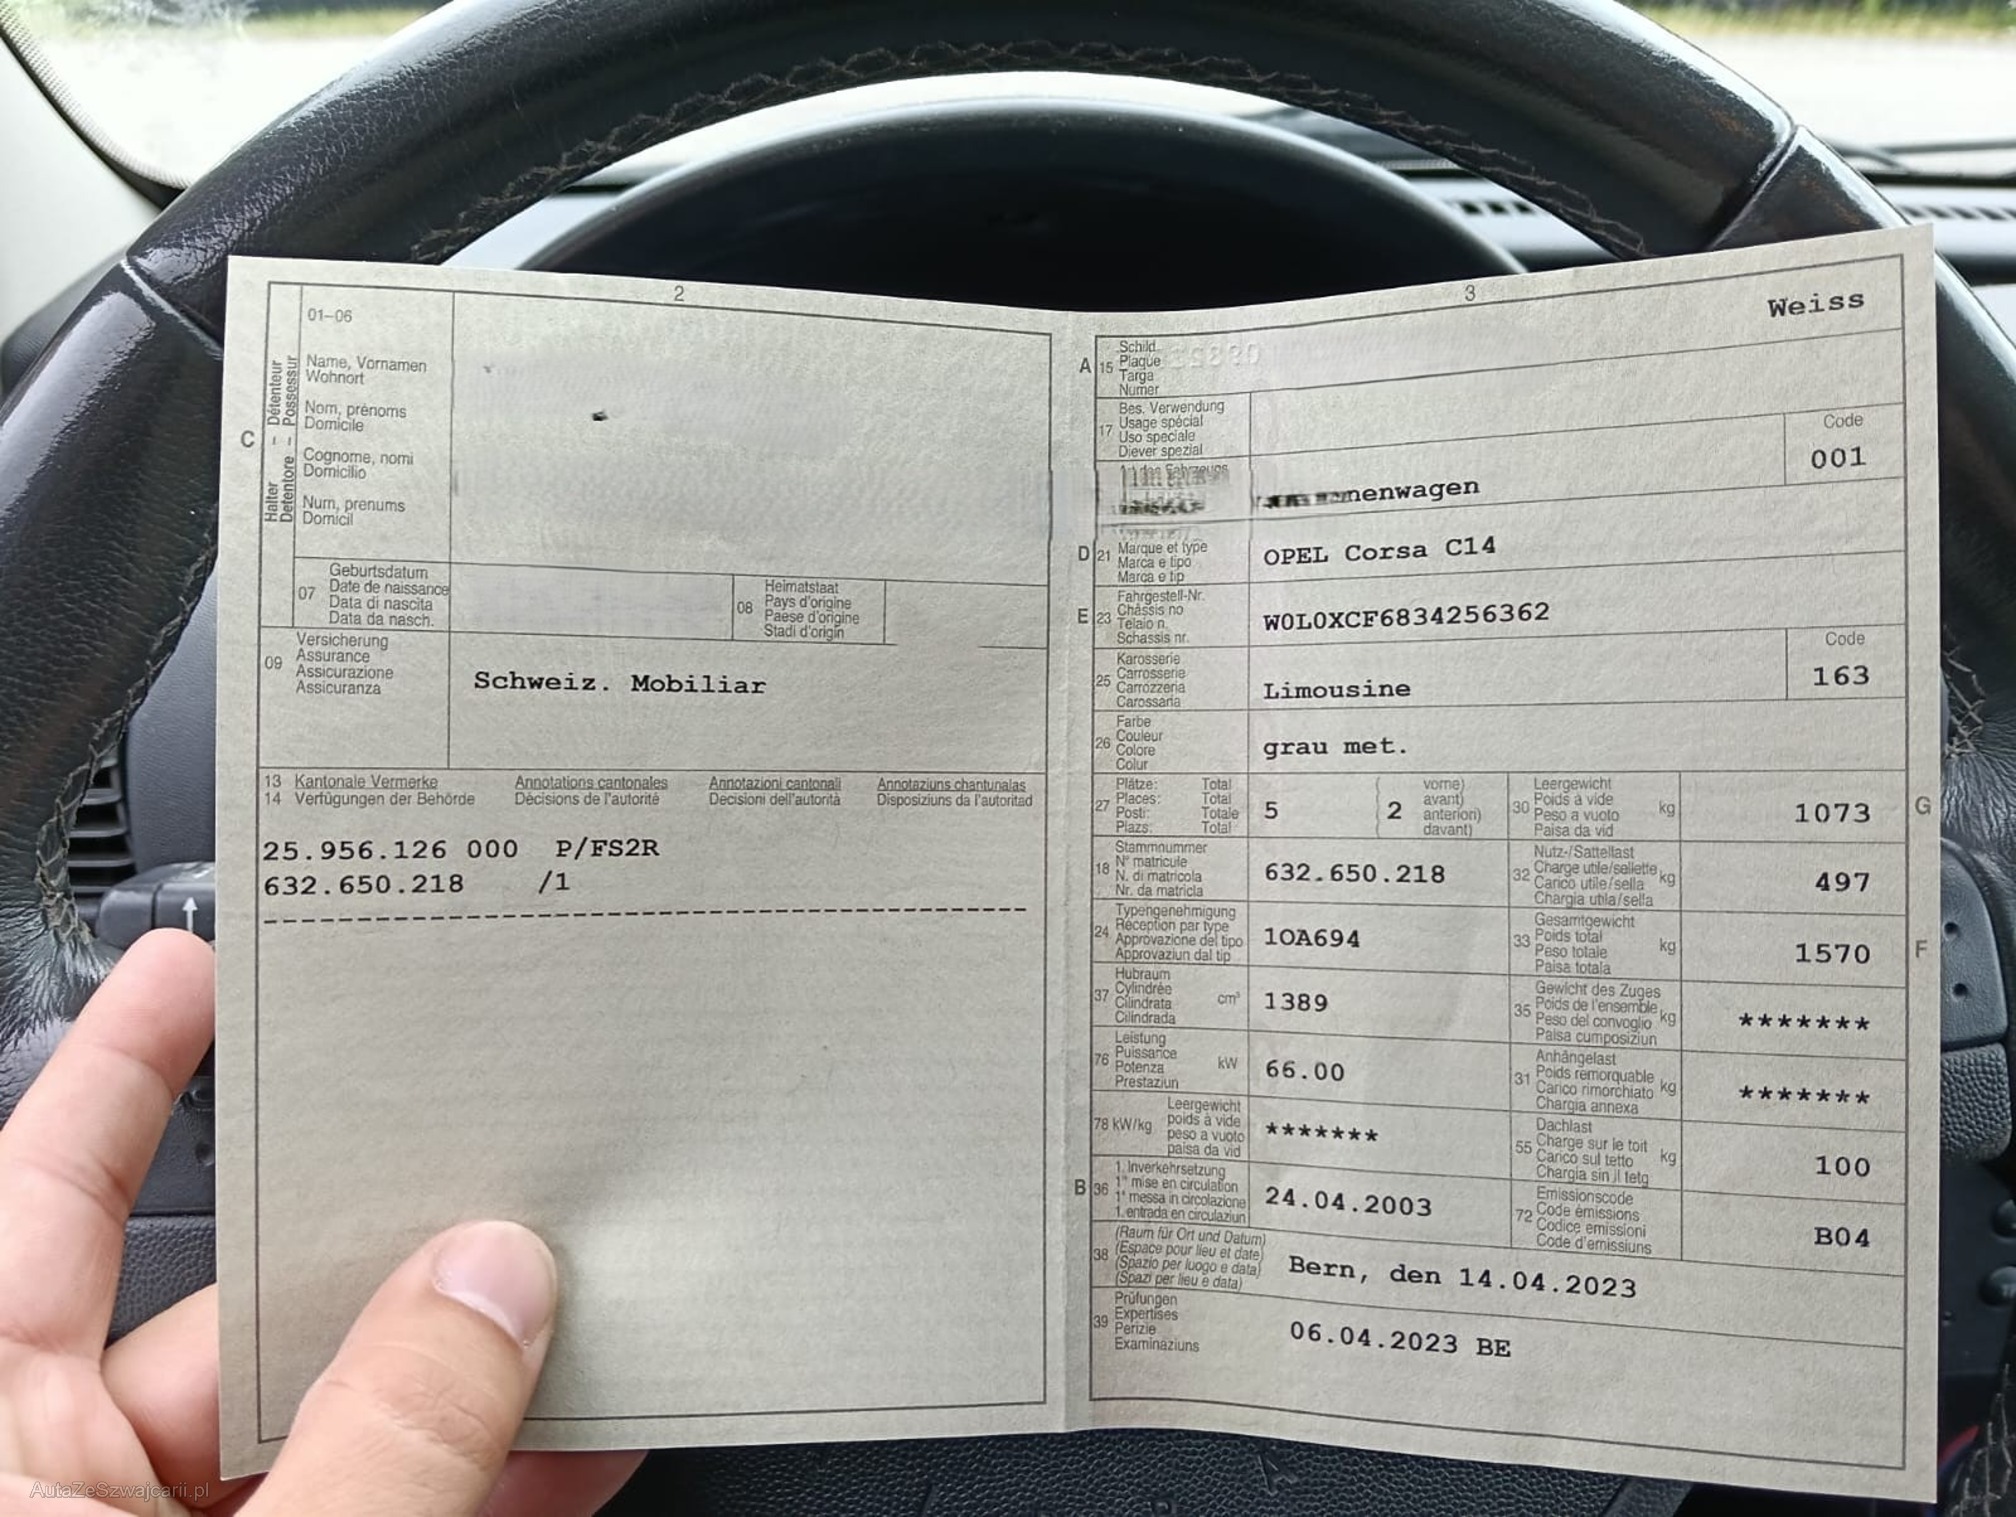 2
01–06
Name, Vornamen
Wohnort
Nom, prénoms
Domicile
Cognome, nomi
Domicilio
Num, prenums
Domicil
C
Halter – Détenteur
Detentore – Possessur
07
Geburtsdatum
Date de naissance
Data di nascita
Data da nasch.
08
Heimatstaat
Pays d'origine
Paese d'origine
Stadi d'origin
09
Versicherung
Assurance
Assicurazione
Assicuranza
Schweiz. Mobiliar
13 Kantonale Vermerke Annotations cantonales Annotazioni cantonali Annotaziuns chantunalas
14 Verfügungen der Behörde Décisions de l'autorité Decisioni dell'autorità Disposiziuns da l'autoritad
25.956.126 000 P/FS2R
632.650.218 /1
3
Weiss
A 15
Schild
Plaque
Targa
Numer
17
Bes. Verwendung
Usage spécial
Uso speciale
Diever spezial
Code
001
menwagen
D 21
Marque et type
Marca e tipo
Marca e tip
OPEL Corsa C14
E 23
Fahrgestell-Nr.
Châssis no
Telaio n.
Schassis nr.
W0L0XCF6834256362
25
Karosserie
Carrosserie
Carrozzeria
Carossaria
Limousine
Code
163
26
Farbe
Couleur
Colore
Colur
grau met.
27
Plätze: Total
Places: Total
Posti: Totale
Plazs: Total
5
( vorne)
2 avant)
anteriori)
( davant)
30
Leergewicht
Poids à vide
Peso a vuoto kg
Paisa da vid
1073
G
18
Stammnummer
N° matricule
N. di matricola
Nr. da matricla
632.650.218
32
Nutz-/Sattellast
Charge utile/sellette kg
Carico utile/sella
Chargia utila/sella
497
24
Typengenehmigung
Réception par type
Approvazione del tipo
Approvaziun dal tip
1OA694
33
Gesamtgewicht
Poids total
Peso totale kg
Paisa totala
1570
F
37
Hubraum
Cylindrée
Cilindrata cm³
Cilindrada
1389
35
Gewicht des Zuges
Poids de l'ensemble
Peso del convoglio kg
Paisa cumposiziun
*******
76
Leistung
Puissance
Potenza kW
Prestaziun
66.00
31
Anhängelast
Poids remorquable
Carico rimorchiato kg
Chargia annexa
*******
78 kW/kg
Leergewicht
poids à vide
peso a vuoto
paisa da vid
*******
55
Dachlast
Charge sur le toit
Carico sul tetto kg
Chargia sin il tetg
100
B 36
1. Inverkehrsetzung
1re mise en circulation
1a messa in circolazione
1. entrada en circulaziun
24.04.2003
72
Emissionscode
Code émissions
Codice emissioni
Code d'emissiuns
B04
38
(Raum für Ort und Datum)
(Espace pour lieu et date)
(Spazio per luogo e data)
(Spazi per lieu e data)
Bern, den 14.04.2023
39
Prüfungen
Expertises
Perizie
Examinaziuns
06.04.2023 BE
AutaZeSzwajcarii.pl